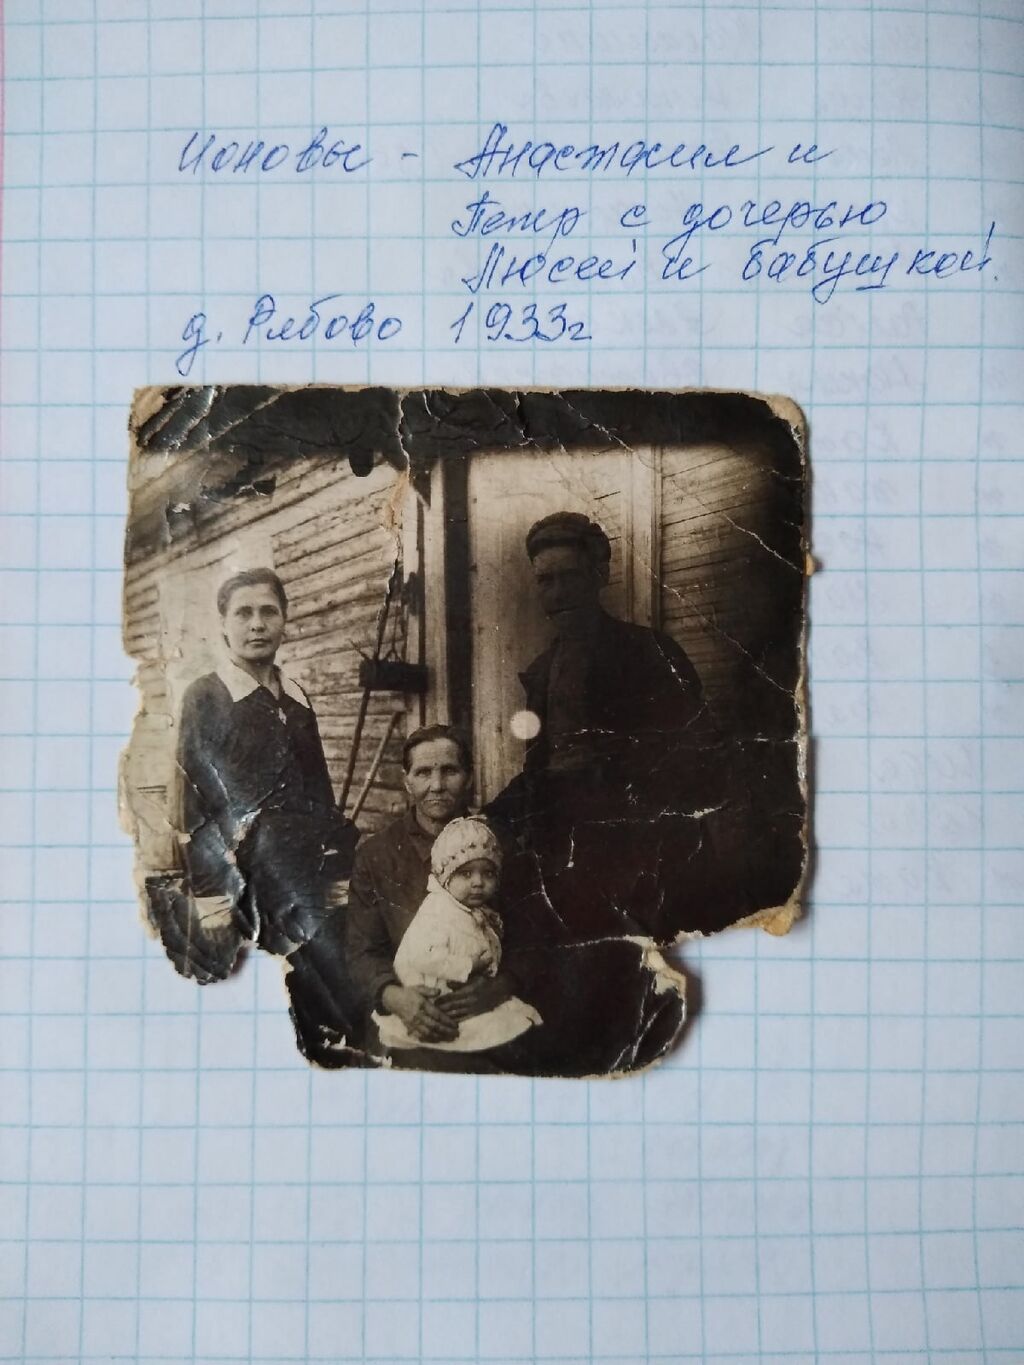 Ионовы - Анастасия и
Петр с дочерью
Люсей и бабушкой.
д. Рябово 1933г